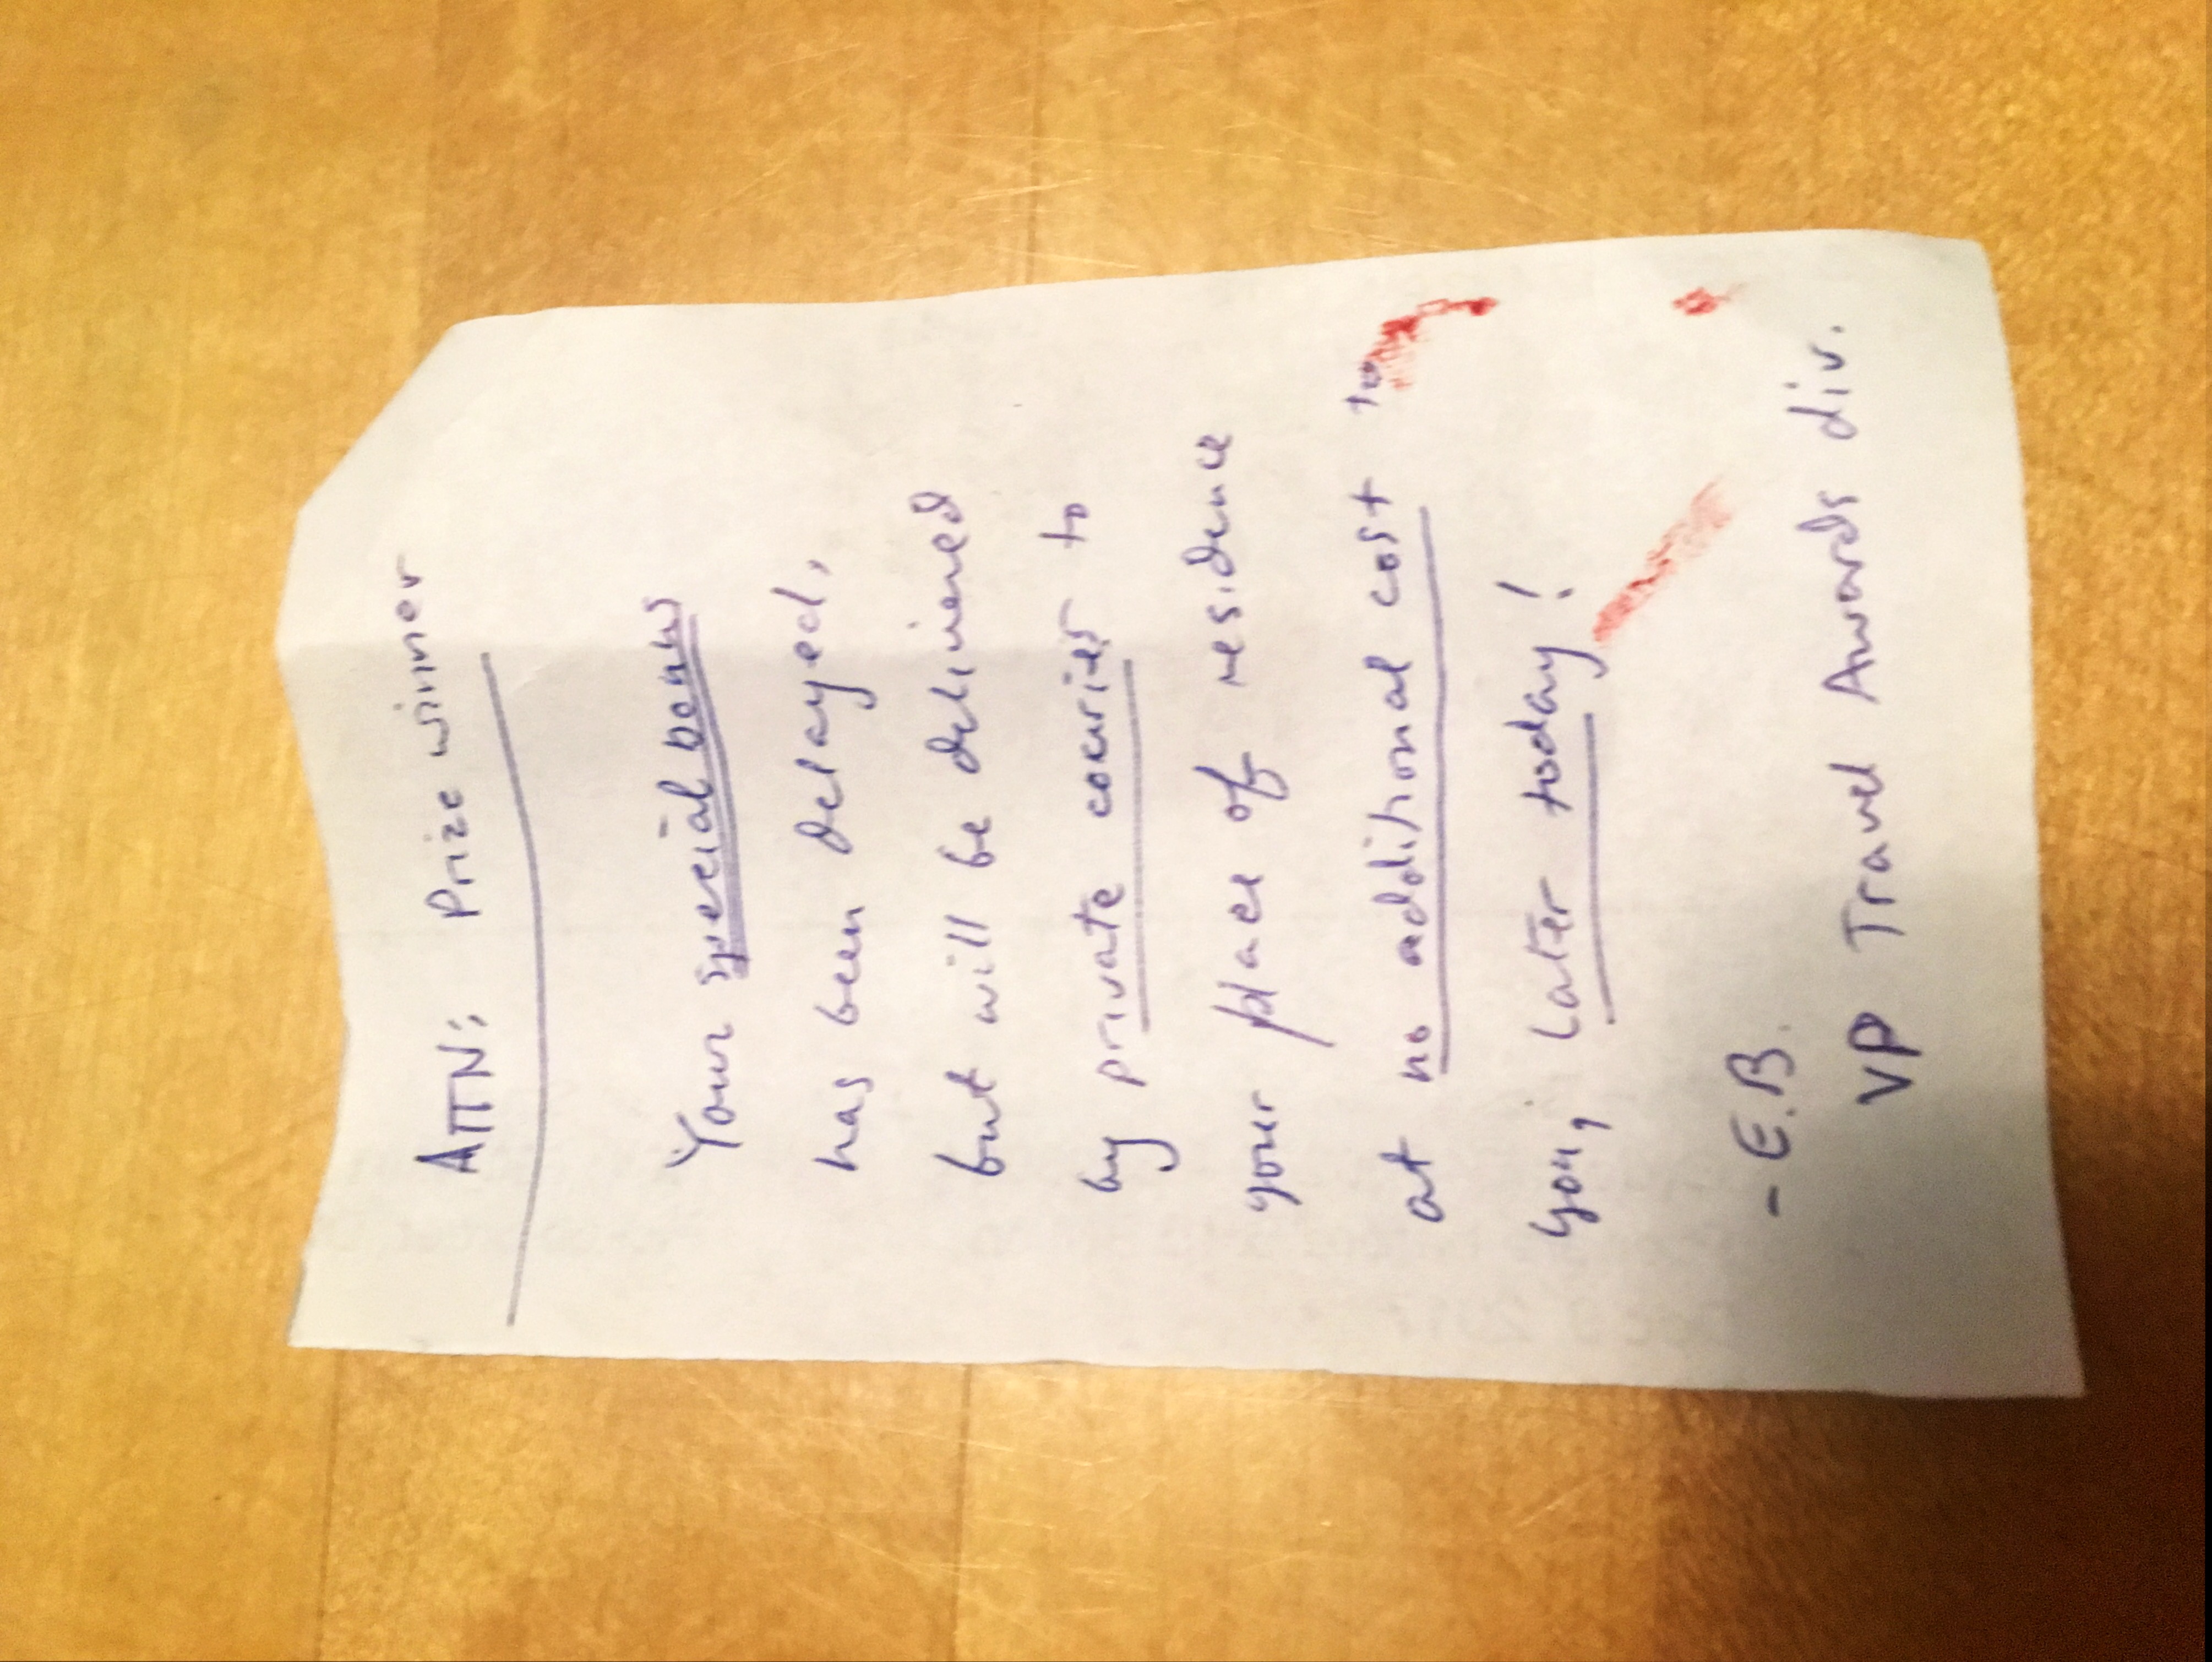 ATTN: Prize winner
Your special bonus
has been delayed,
but will be delivered
by private courier to
your place of residence
at no additional cost to
you, later today!
- E.B.
VP Travel Awards div.